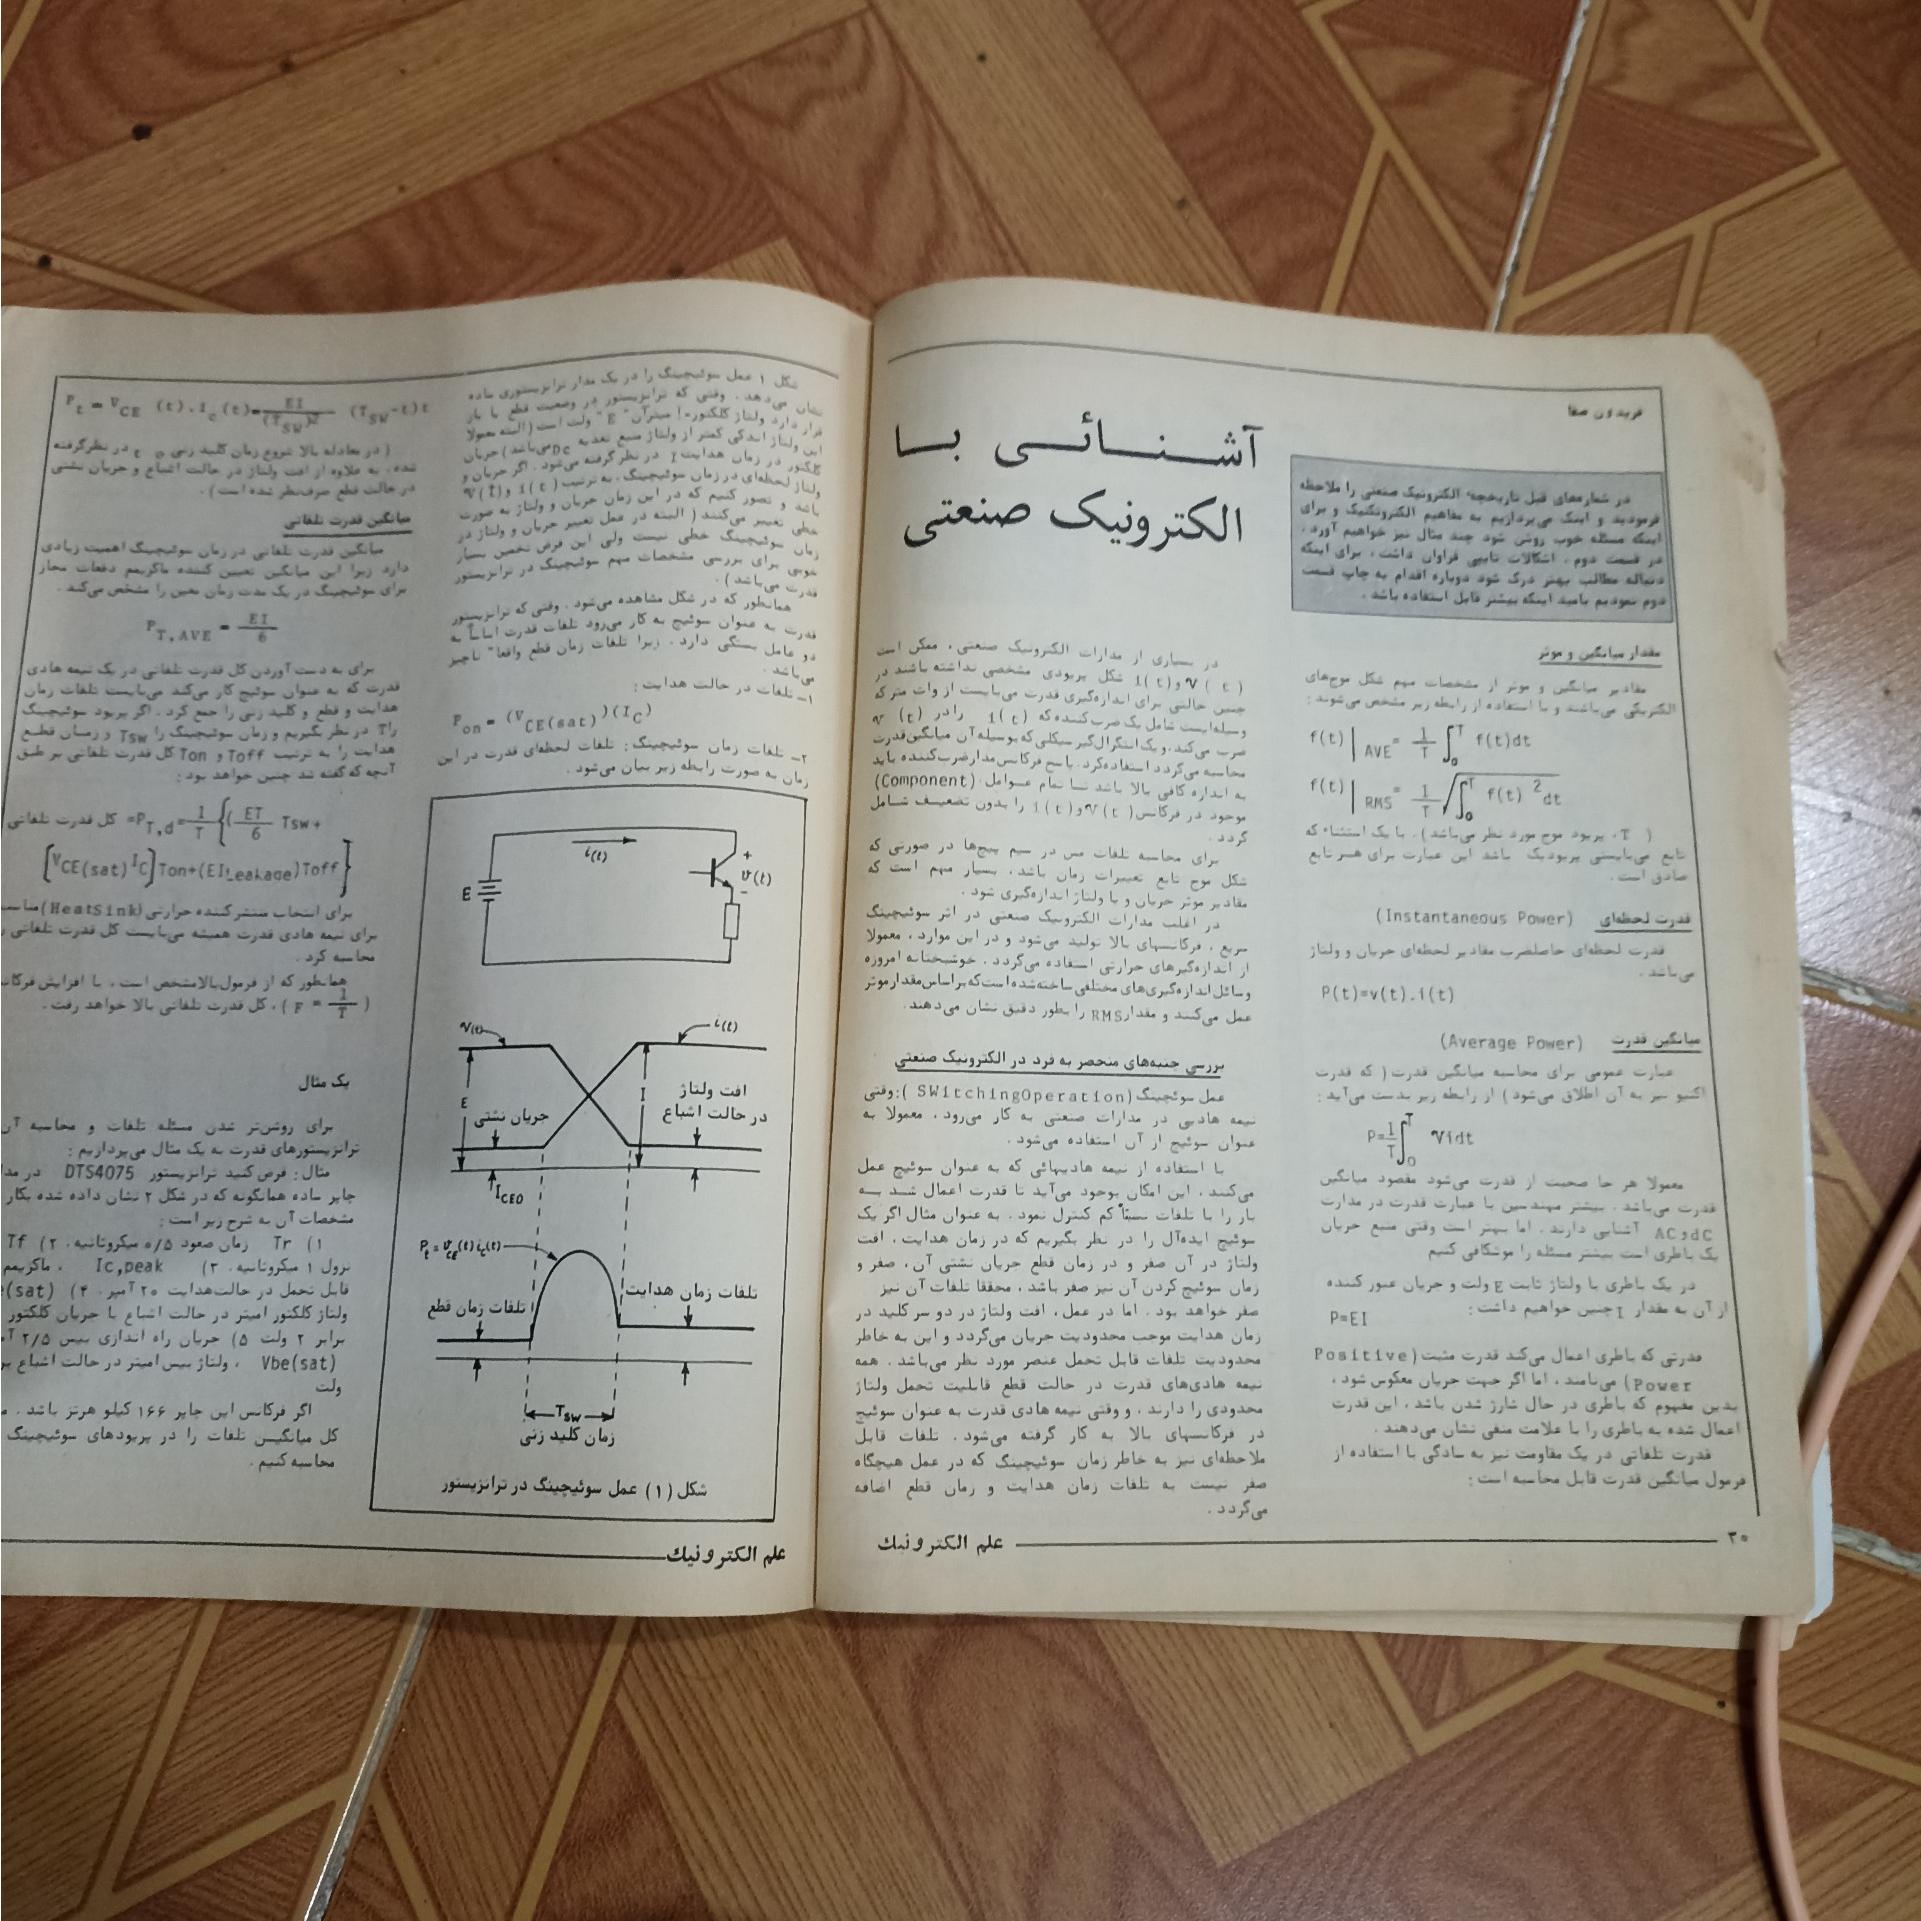 فریدون صفا
آشنائی با
الکترونیک صنعتی
در شماره‌های قبل تاریخچه الکترونیک صنعتی را ملاحظه
فرمودید و اینک می‌پردازیم به مفاهیم الکترونیک و برای
اینکه مسئله خوب روشن شود چند مثال نیز خواهیم آورد.
در قسمت دوم، اشکالات تایپی فراوان داشت، برای اینکه
دنباله مطالب بهتر درک شود دوباره اقدام به چاپ قسمت
دوم نمودیم بامید اینکه بیشتر قابل استفاده باشد.
مقدار میانگین و موثر
مقادیر میانگین و موثر از مشخصات مهم شکل موج‌های
الکتریکی می‌باشند و با استفاده از رابطه زیر مشخص می‌شوند:
f(t)| AVE = 1/T ∫₀ᵀ f(t)dt
f(t)| RMS = 1/T √∫₀ᵀ f(t)² dt
( T، پریود موج مورد نظر می‌باشد). با یک استثناء که
تابع می‌بایستی پریودیک باشد این عبارت برای هر تابع
صادق است.
قدرت لحظه‌ای (Instantaneous Power)
قدرت لحظه‌ای حاصلضرب مقادیر لحظه‌ای جریان و ولتاژ
می‌باشد.
P(t)=v(t).i(t)
میانگین قدرت (Average Power)
عبارت عمومی برای محاسبه میانگین قدرت ( که قدرت
اکتیو نیز به آن اطلاق می‌شود) از رابطه زیر بدست می‌آید:
P=1/T ∫₀ᵀ Vidt
معمولا هر جا صحبت از قدرت می‌شود مقصود میانگین
قدرت می‌باشد. بیشتر مهندسین با عبارت قدرت در مدارت
dC و AC آشنایی دارند. اما بهتر است وقتی منبع جریان
یک باطری است بیشتر مسئله را موشکافی کنیم
در یک باطری با ولتاژ ثابت E ولت و جریان عبور کننده
از آن به مقدار I چنین خواهیم داشت:
P=EI
قدرتی که باطری اعمال می‌کند قدرت مثبت (Positive
Power) می‌نامند، اما اگر جهت جریان معکوس شود،
بدین مفهوم که باطری در حال شارژ شدن باشد، این قدرت
اعمال شده به باطری را با علامت منفی نشان می‌دهند.
قدرت تلفاتی در یک مقاومت نیز به سادگی با استفاده از
فرمول میانگین قدرت قابل محاسبه است:
در بسیاری از مدارات الکترونیک صنعتی، ممکن است
V(t) و i(t) شکل پریودی مشخصی نداشته باشند در
چنین حالتی برای اندازه‌گیری قدرت می‌بایست از وات متر که
وسیله‌ایست شامل یک ضرب کننده که i(t) را در V(t)
ضرب می‌کند. و یک انتگرال‌گیر سیکلی که بوسیله آن میانگین قدرت
محاسبه می‌گردد استفاده کرد. پاسخ فرکانس مدار ضرب کننده باید
به اندازه کافی بالا باشد تا تمام عوامل (Component)
موجود در فرکانس V(t) و i(t) را بدون تضعیف شامل
گردد.
برای محاسبه تلفات مس در سیم پیچ‌ها در صورتی که
شکل موج تابع تغییرات زمان باشد، بسیار مهم است که
مقادیر موثر جریان و یا ولتاژ اندازه‌گیری شود.
در اغلب مدارات الکترونیک صنعتی در اثر سوئیچینگ
سریع، فرکانسهای بالا تولید می‌شود و در این موارد، معمولا
از اندازه‌گیرهای حرارتی استفاده می‌گردد. خوشبختانه امروزه
وسائل اندازه‌گیری‌های مختلفی ساخته شده است که بر اساس مقدار موثر
عمل می‌کنند و مقدار RMS را بطور دقیق نشان می‌دهند.
بررسی جنبه‌های منحصر به فرد در الکترونیک صنعتی
عمل سوئچینگ (SWitchingOperation): وقتی
نیمه هادیی در مدارات صنعتی به کار می‌رود، معمولا به
عنوان سوئیچ از آن استفاده می‌شود.
با استفاده از نیمه هادیهائی که به عنوان سوئیچ عمل
می‌کنند، این امکان بوجود می‌آید تا قدرت اعمال شد به
بار را با تلفات نسبتاً کم کنترل نمود. به عنوان مثال اگر یک
سوئیچ ایده‌آل را در نظر بگیریم که در زمان هدایت، افت
ولتاژ در آن صفر و در زمان قطع جریان نشتی آن، صفر و
زمان سوئیچ کردن آن نیز صفر باشد، محققا تلفات آن نیز
صفر خواهد بود. اما در عمل، افت ولتاژ در دو سر کلید در
زمان هدایت موجب محدودیت جریان می‌گردد و این به خاطر
محدودیت تلفات قابل تحمل عنصر مورد نظر می‌باشد. همه
نیمه هادی‌های قدرت در حالت قطع قابلیت تحمل ولتاژ
محدودی را دارند. و وقتی نیمه هادی قدرت به عنوان سوئیچ
در فرکانسهای بالا به کار گرفته می‌شود. تلفات قابل
ملاحظه‌ای نیز به خاطر زمان سوئیچینگ که در عمل هیچگاه
صفر نیست به تلفات زمان هدایت و زمان قطع اضافه
می‌گردد.
۳۰
علم الکترونیک
شکل ۱ عمل سوئیچینگ را در یک مدار ترانزیستوری ساده
نشان می‌دهد. وقتی که ترانزیستور در وضعیت قطع یا باز
قرار دارد ولتاژ کلکتور-امیتر آن "E" ولت است (البته معمولا
این ولتاژ اندکی کمتر از ولتاژ منبع تغذیه DC می‌باشد) جریان
کلکتور در زمان هدایت I در نظر گرفته می‌شود. اگر جریان و
ولتاژ لحظه‌ای در زمان سوئیچینگ، به ترتیب i(t) و V(t)
باشد و تصور کنیم که در این زمان جریان و ولتاژ به صورت
خطی تغییر می‌کنند ( البته در عمل تغییر جریان و ولتاژ در
زمان سوئیچینگ خطی نیست ولی این فرض تخمین بسیار
خوبی برای بررسی مشخصات مهم سوئیچینگ در ترانزیستور
قدرت می‌باشد).
همانطور که در شکل مشاهده می‌شود. وقتی که ترانزیستور
قدرت به عنوان سوئیچ به کار می‌رود تلفات قدرت اساساً به
دو عامل بستگی دارد. زیرا تلفات زمان قطع واقعا" ناچیز
می‌باشد.
۱- تلفات در حالت هدایت:
Pon = (VCE(sat))(IC)
۲- تلفات زمان سوئیچینگ: تلفات لحظه‌ای قدرت در این
زمان به صورت رابطه زیر بیان می‌شود.
i(t)
E
+
v(t)
-
v(t)
i(t)
E
I
جریان نشتی
افت ولتاژ
در حالت اشباع
ICEO
Pt = vCE(t) ic(t)
تلفات زمان قطع
تلفات زمان هدایت
Tsw
زمان کلید زنی
شکل (۱) عمل سوئیچینگ در ترانزیستور
Pt = VCE (t).Ic(t)= EI/(TSW)² (TSW-t)t
( در معادله بالا شروع زمان کلید زنی t=0 در نظر گرفته
شده. به علاوه از افت ولتاژ در حالت اشباع و جریان نشتی
در حالت قطع صرف‌نظر شده است).
میانگین قدرت تلفاتی
میانگین قدرت تلفاتی در زمان سوئیچینگ اهمیت زیادی
دارد زیرا این میانگین تعیین کننده ماکزیمم دفعات مجاز
برای سوئیچینگ در یک مدت زمان معین را مشخص می‌کند.
PT,AVE = EI/6
برای به دست آوردن کل قدرت تلفاتی در یک نیمه هادی
قدرت که به عنوان سوئیچ کار می‌کند می‌بایست تلفات زمان
هدایت و قطع و کلید زنی را جمع کرد. اگر پریود سوئیچینگ
را T در نظر بگیریم و زمان سوئیچینگ را Tsw و زمان قطع
هدایت را به ترتیب Toff و Ton کل قدرت تلفاتی بر طبق
آنچه که گفته شد چنین خواهد بود:
کل قدرت تلفاتی =PT,d= 1/T {(ET/6 Tsw+
[VCE(sat) IC]Ton+(EILeakage)Toff}
برای انتخاب منتشر کننده حرارتی (HeatSink) مناسب
برای نیمه هادی قدرت همیشه می‌بایست کل قدرت تلفاتی
محاسبه کرد.
همانطور که از فرمول بالا مشخص است، با افزایش
( F = 1/T )، کل قدرت تلفاتی بالا خواهد رفت.
یک مثال
برای روشن‌تر شدن مسئله تلفات و محاسبه
ترانزیستورهای قدرت به یک مثال می‌پردازیم:
مثال: فرض کنید ترانزیستور DTS4075 در
چاپر ساده همانگونه که در شکل ۲ نشان داده شده بکار
مشخصات آن به شرح زیر است:
۱) Tr زمان صعود ۰/۵ میکروثانیه. ۲) Tf
نزول ۱ میکروثانیه. ۳) Ic,peak، ماکزیمم
قابل تحمل در حالت هدایت ۲۰ آمپر. ۴) (sat)
ولتاژ کلکتور امیتر در حالت اشباع با جریان کلکتور
برابر ۲ ولت ۵) جریان راه اندازی بیس ۲/۵
Vbe(sat)، ولتاژ بیس امیتر در حالت اشباع
ولت
اگر فرکانس این چاپر ۱۶۶ کیلو هرتز باشد.
کل میانگین تلفات را در پریودهای سوئیچینگ
محاسبه کنیم.
علم الکترونیک